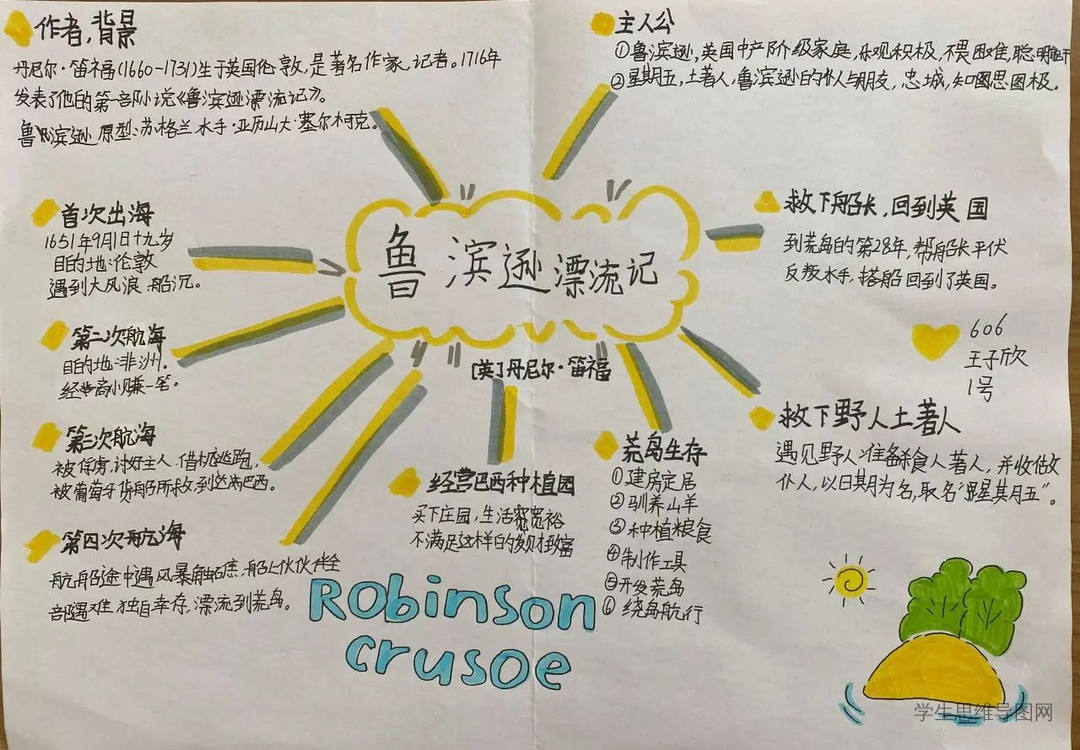 作者,背景
丹尼尔·笛福(1660-1731)生于英国伦敦,是著名作家,记者。1716年
发表了他的第一部小说《鲁滨逊漂流记》。
鲁滨逊原型:苏格兰水手·亚历山大·塞尔柯克。
主人公
①鲁滨逊,英国中产阶级家庭,乐观积极,不畏困难,聪明
②星期五,土著人,鲁滨逊的仆人与朋友,忠城,知图恩图极.
首次出海
1651年9月1日十九岁
目的地:伦敦
遇到大风浪,船沉。
第二次航海
目的地:非洲.
经营商小赚一笔。
第三次航海
被俘虏,讨好主人,借机逃跑,
被葡萄牙货船所救,到达巴西。
第四次航海
航船途中遇风暴触礁,船上伙伴全
部遇难,独自幸存,漂流到荒岛。
鲁滨逊漂流记
[英]丹尼尔·笛福
经营巴西种植园
买下庄园,生活宽裕
不满足这样的发财致富
荒岛生存
①建房定居
②驯养山羊
③种植粮食
④制作工具
⑤开发荒岛
⑥绕岛航行
救下船长,回到英国
到荒岛的第28年,帮船长平伏
反叛水手,搭船回到了英国。
606
王子欣
1号
救下野人土著人
遇见野人准备食人著人,并收做
仆人,以日期为名,取名"星其月五"。
Robinson
crusoe
学生思维导图网